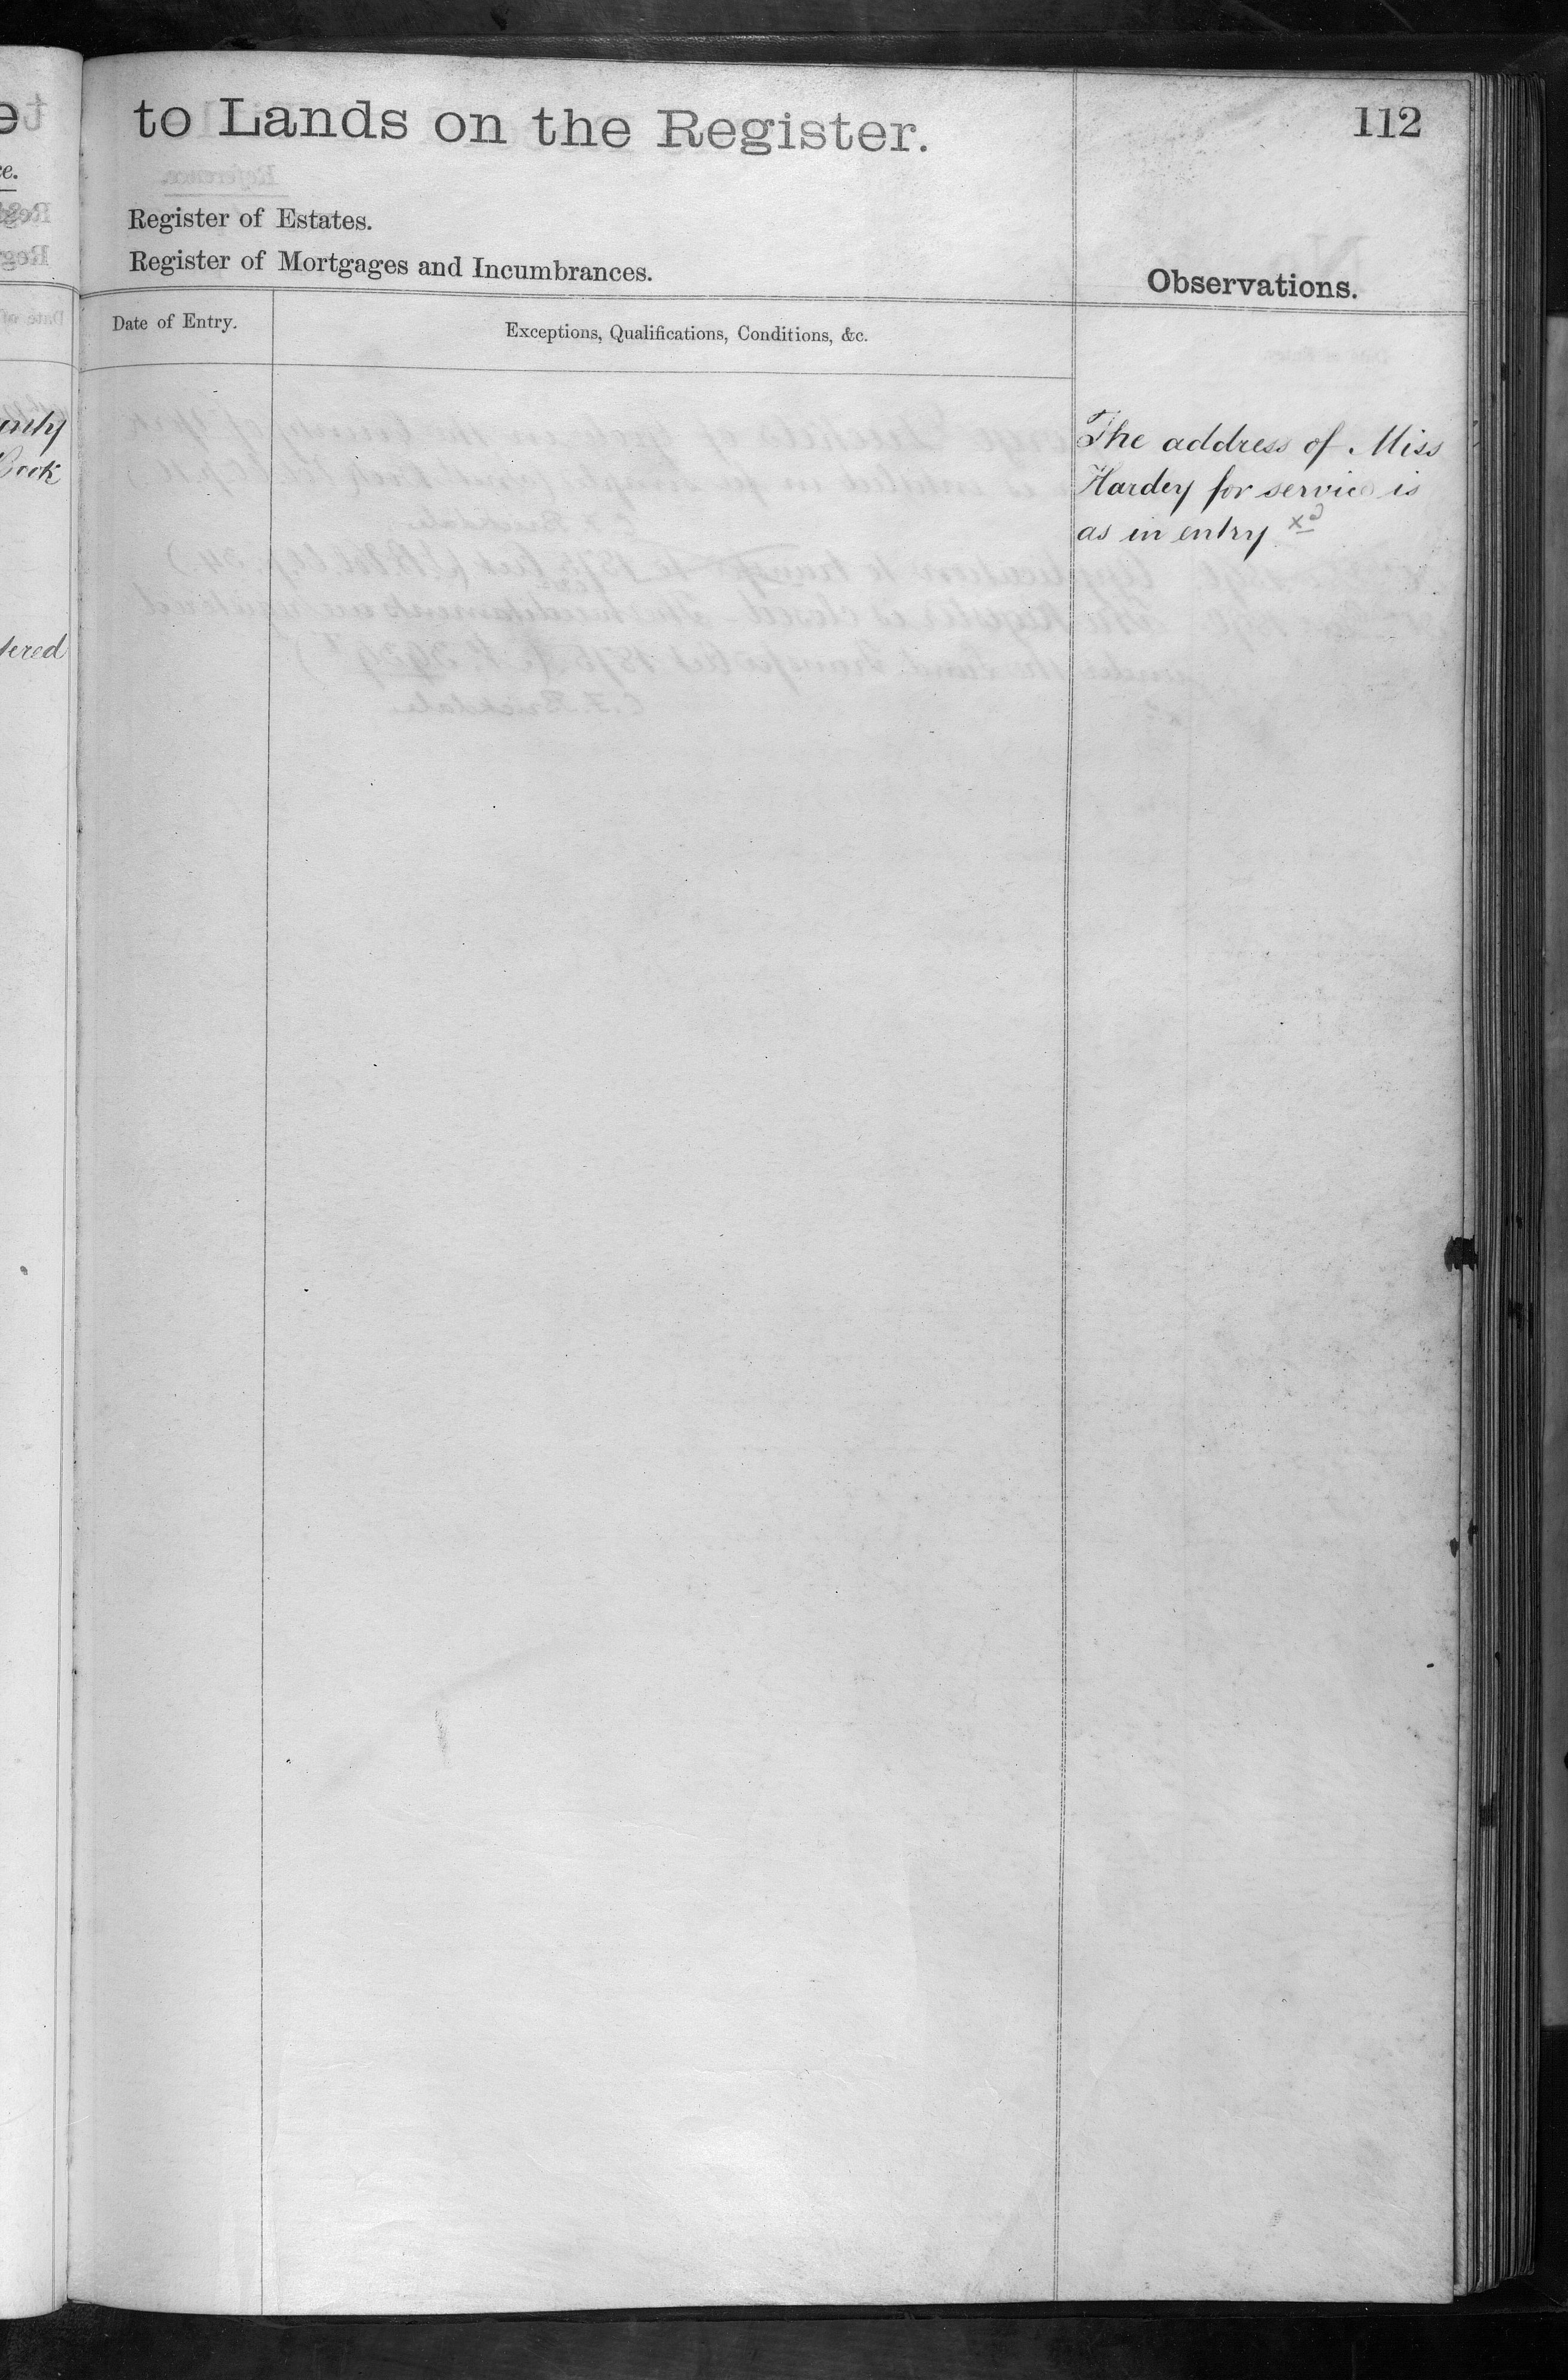 to Lands on the Register.
112
Register of Estates.
Register of Mortgages and Incumbrances.
Observations.
Date of Entry.
Exceptions, Qualifications, Conditions, &c.
The address of Miss
Hardey for service is
as in entry